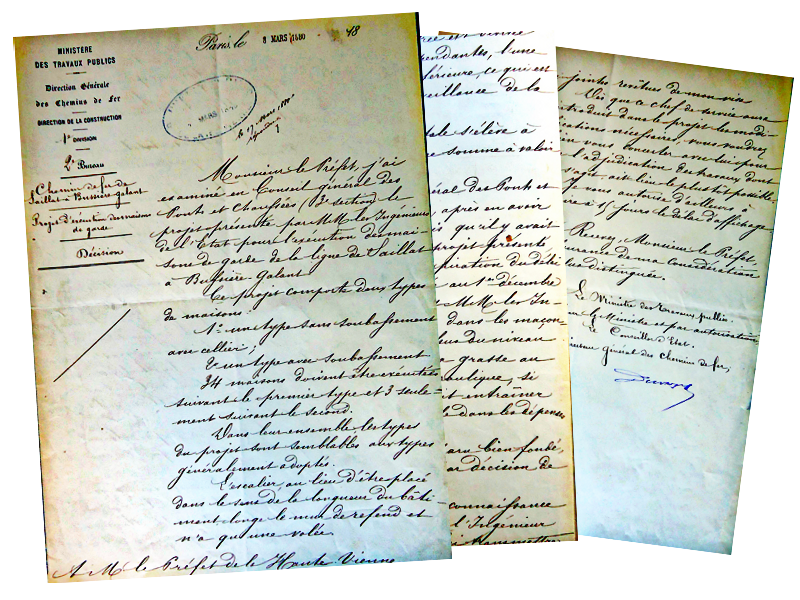 MINISTÈRE
DES TRAVAUX PUBLICS
Direction Générale
des Chemins de Fer
DIRECTION DE LA CONSTRUCTION
1e DIVISION
2e Bureau
Chemin de fer de
Saillat à Bussière Galant
Projet d'exécution des maisons
de garde
Décision
Paris, le 8 MARS 1880
48
MARS
le 17 Mars 1880
Monsieur le Préfet, j'ai
examiné en Conseil général des
Ponts et Chaussées (3e section) le
projet présenté par MM. les Ingénieurs
de l'Etat pour l'exécution de mai-
sons de garde de la ligne de Saillat
à Bussière Galant
Ce projet comporte deux types
de maisons:
1o un type sans soubassement
avec cellier;
2o un type avec soubassement
34 maisons doivent être exécutées
suivant le premier type et 3 seule-
ment suivant le second.
Dans leur ensemble les types
du projet sont semblables aux types
généralement adoptés.
L'escalier, au lieu d'être placé
dans le sens de la longueur du bâti-
ment longe le mur de refend et
n'a qu'une volée
A Mr le Préfet de la Haute-Vienne
pendantes, l'une
férieure, ce qui est
veillance de la
tale s'élève à
somme à valoir
éral des Ponts et
après en avoir
is qu'il y avait
projet présenté
piration du délai
au 1er décembre
MM. les In-
dans les maçon-
sus du niveau
grasse au
aulique, si
it entraîner
dans les dépenses
paru bien fondé,
décision de
connaissance
l'Ingénieur
transmettre
jointes revêtues de mon visa
Dès que ce chef de service aura
introduit dans le projet les modi-
fications nécessaires, vous voudrez
vous concerter avec lui pour
l'adjudication des travaux dont
s'agit ait lieu le plus tôt possible.
Je vous autorise d'ailleurs à
à 15 jours le délai d'affichage
Recevez, Monsieur le Préfet,
assurance de ma considération
distinguée.
Le Ministre des Travaux publics
le Ministre et par autorisation
Le Conseiller d'Etat
Directeur Général des Chemins de fer,